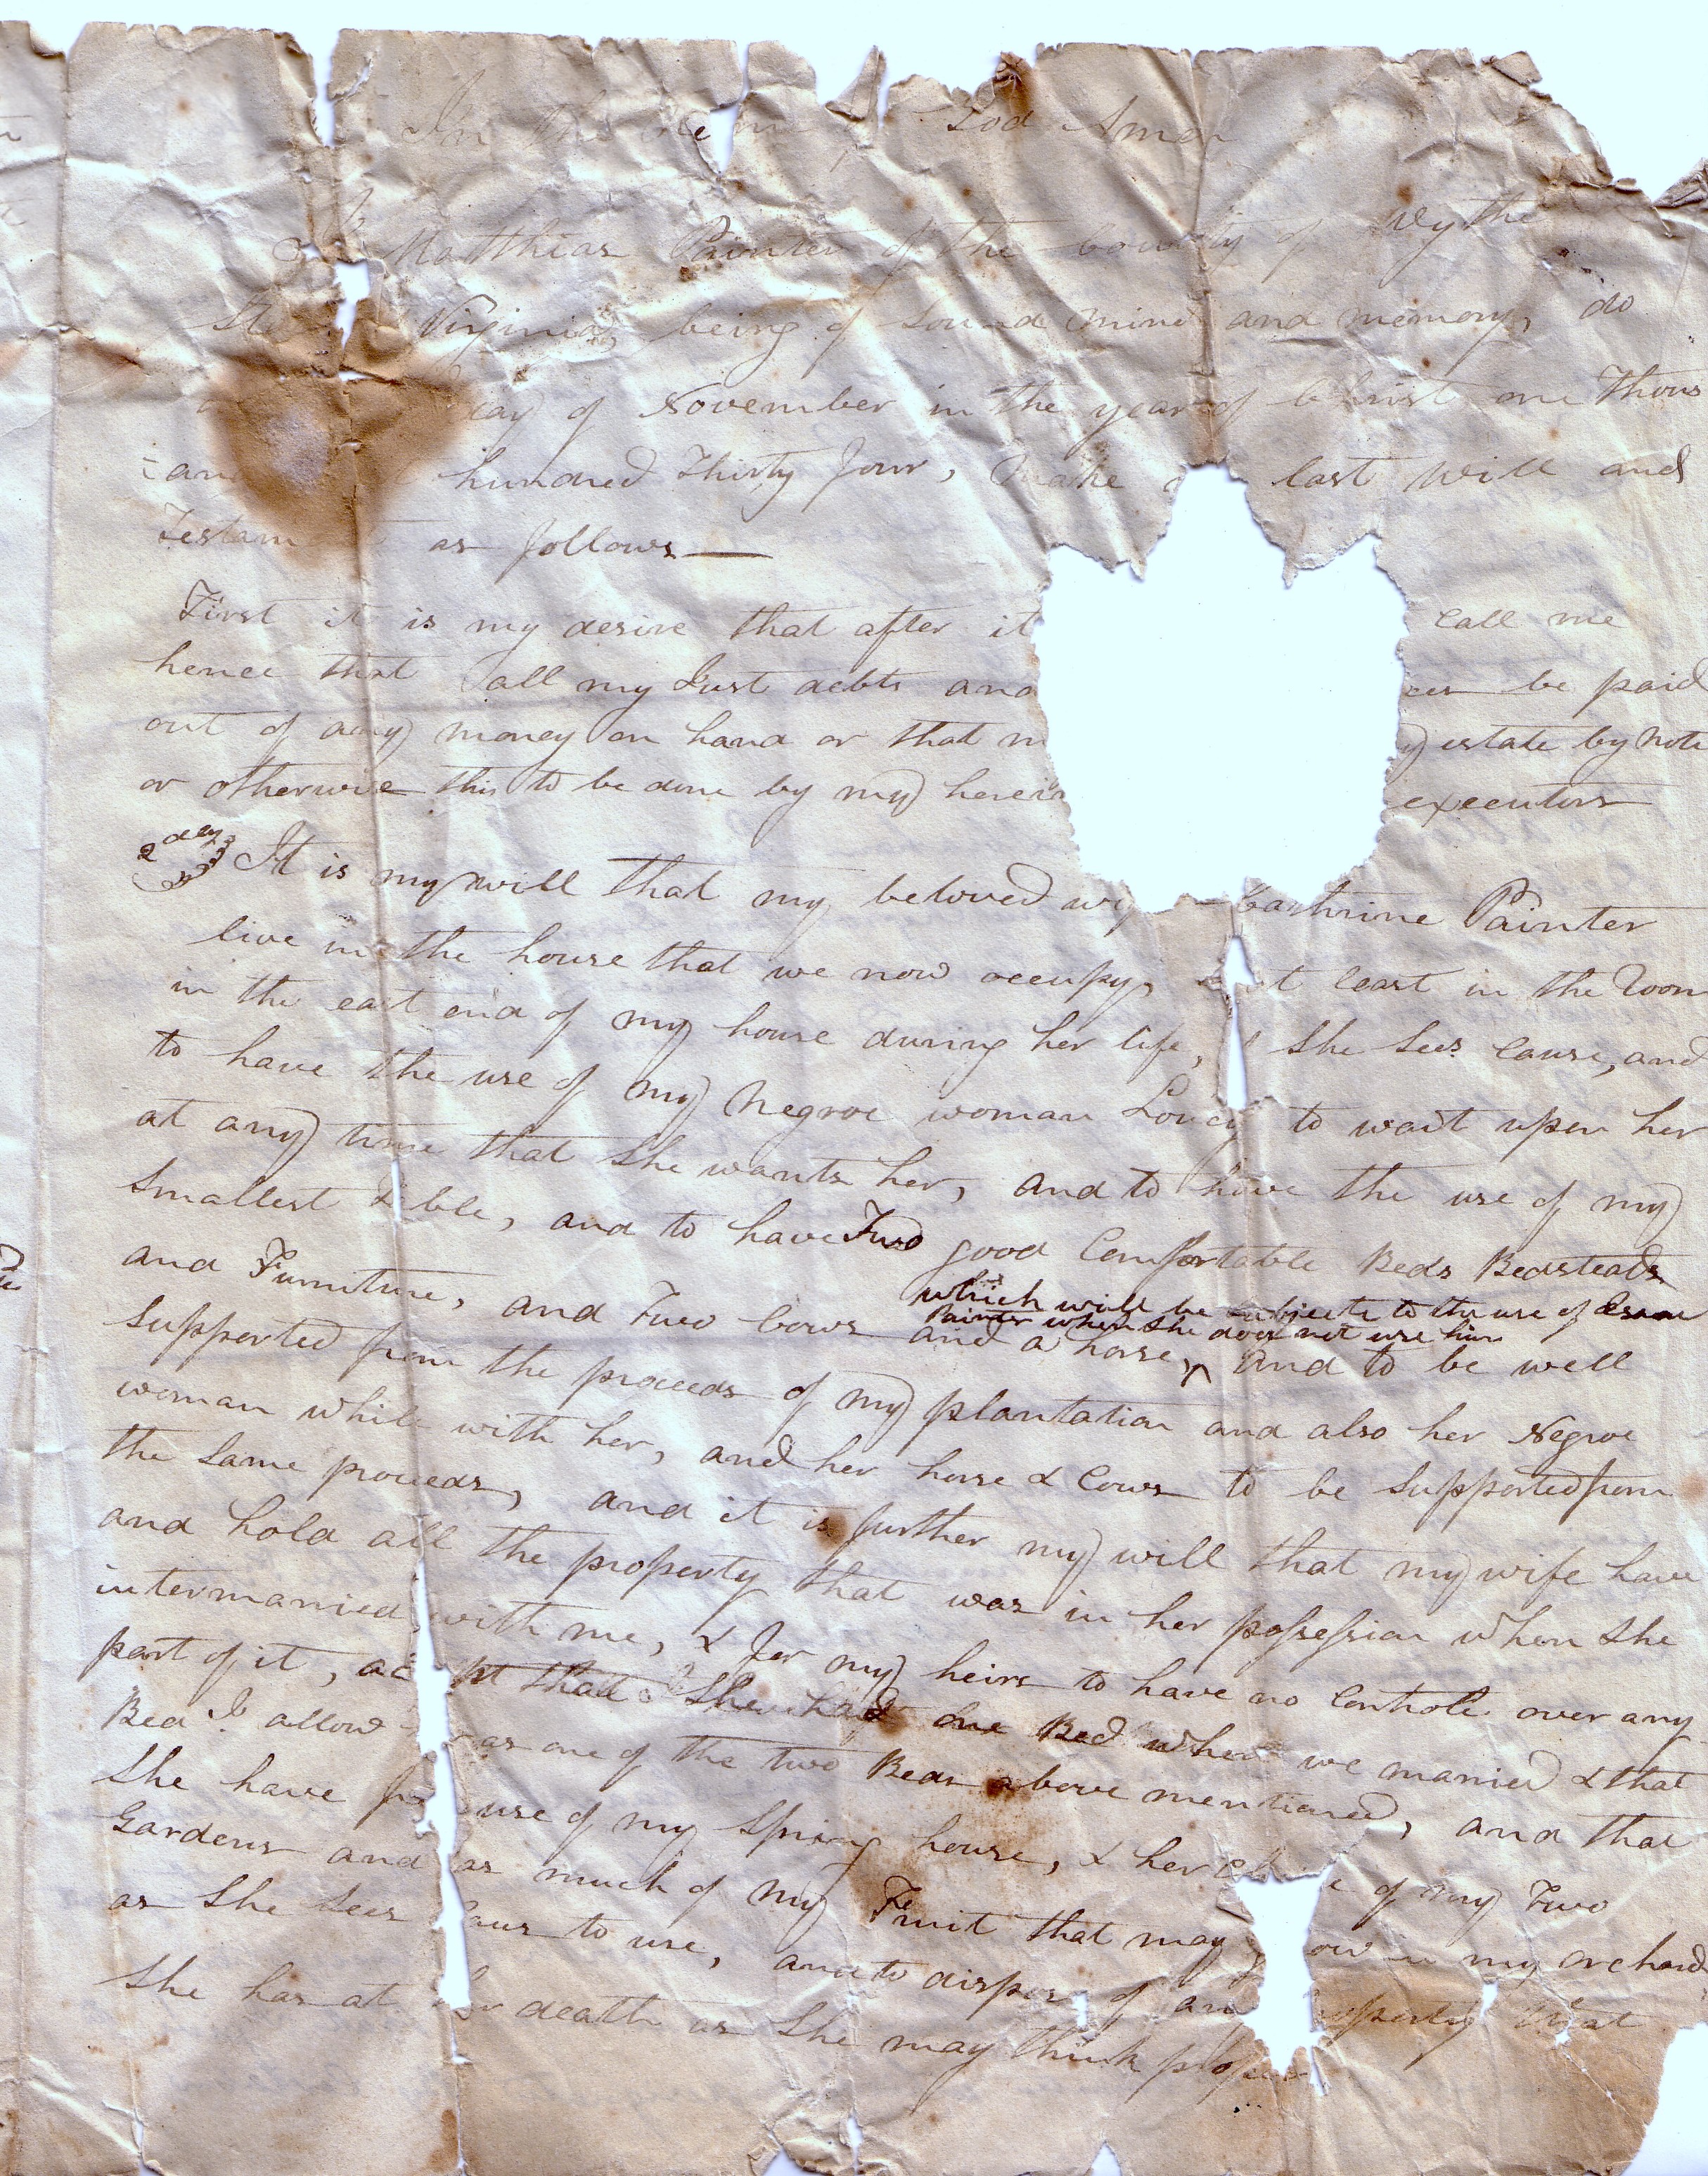 In the Name of God Amen
I Matthias Painter of the County of Wythe
Virginia, being of Sound mind and memory, do
day of November in the year of Christ one Thous
hundred Thirty four, Make last Will and
Testam as follows —
First it is my desire that after it call me
hence that all my Just debts and be paid
out of any money on hand or that m estate by note
or otherwise this to be done by my herein executors
2dly It is my will that my beloved wife Cathrine Painter
live in the house that we now occupy, at least in the Room
in the east end of my house during her life, if She Sees Cause, and
to have the use of my Negroe woman Loucy to wait upon her
at any time that She wants her, and to have the use of my
Smallest table, and to have Two good Comfortable Beds Bedsteads
and Furniture, and Two Cows and a horse, ^ and to be well
which will be subject to the use of
Painter when She does not use him
Supported from the proceeds of my plantation and also her Negroe
woman while with her, and her horse & Cows to be Supported from
the Same proceeds, and it is further my will that my wife have
and hold all the property that was in her possession when She
intermarried with me, & for my heirs to have no Controle over any
part of it, that She had one Bed when we married & that
Bed I allow as one of the two Beds above mentioned, and that
She have use of my Spring house, & her of my Two
Gardens and as much of my Fruit that may grow in my orchard
as She Sees Caus to use, and to dispose of any property that
She has at her death as She may think proper